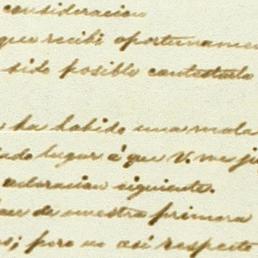 consideracion
que recibi oportunamen
sido posible contestarlo
ha habido una mala
lugar á que V. me ju
aclaracion siguiente.
de nuestra primera
; pero no asi respecto